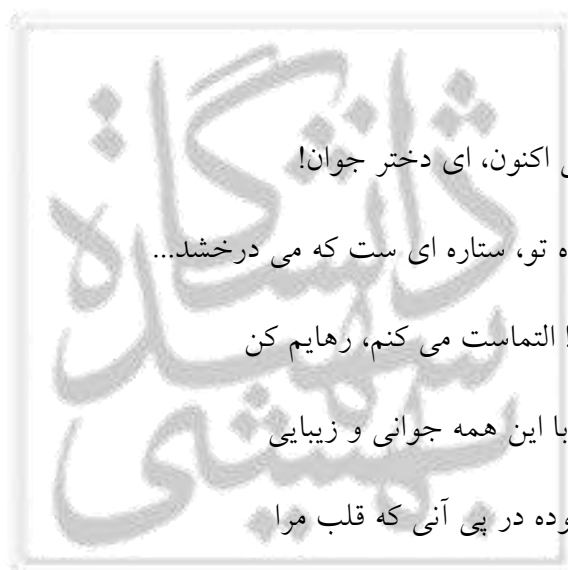 اکنون، ای دختر جوان!
تو، ستاره ای ست که می درخشد...
التماست می کنم، رهایم کن
با این همه جوانی و زیبایی
در پی آنی که قلب مرا
دانشگاه
شهید
بهشتی